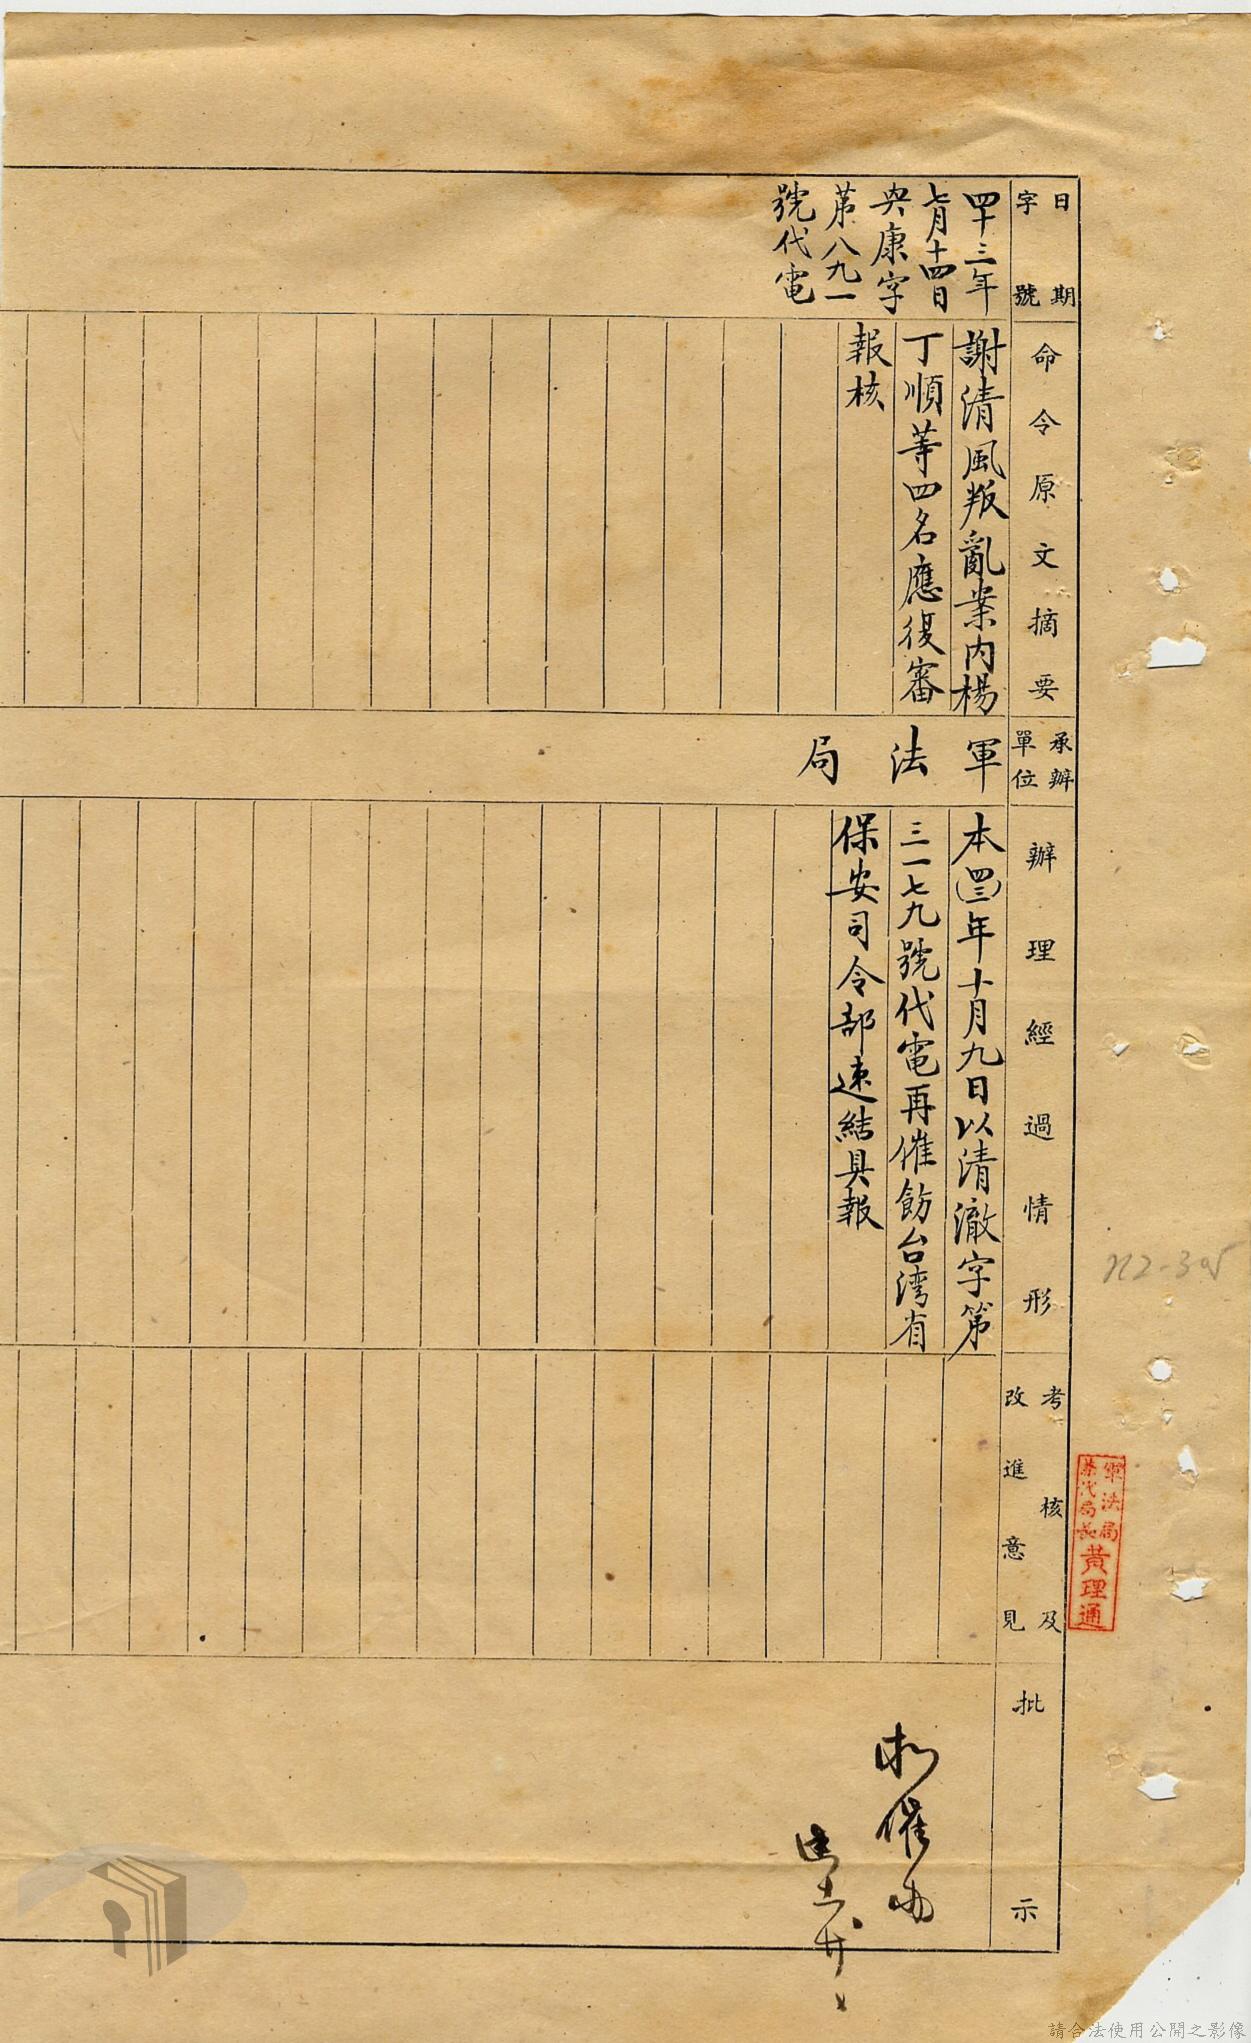 日期
字號
四十三年
七月十四日
央康字
第八九一
號代電
命令原文摘要
謝清風叛亂案內楊
丁順等四名應復審
報核
承辦
單位
軍法局
辦理經過情形
本(四三)年十月九日以清澈字第
三一七九號代電再催飭台湾省
保安司令部速結具報
考核及
改進意見
批示
催办
軍法局
兼代局長黃理通
請合法使用公開之影像